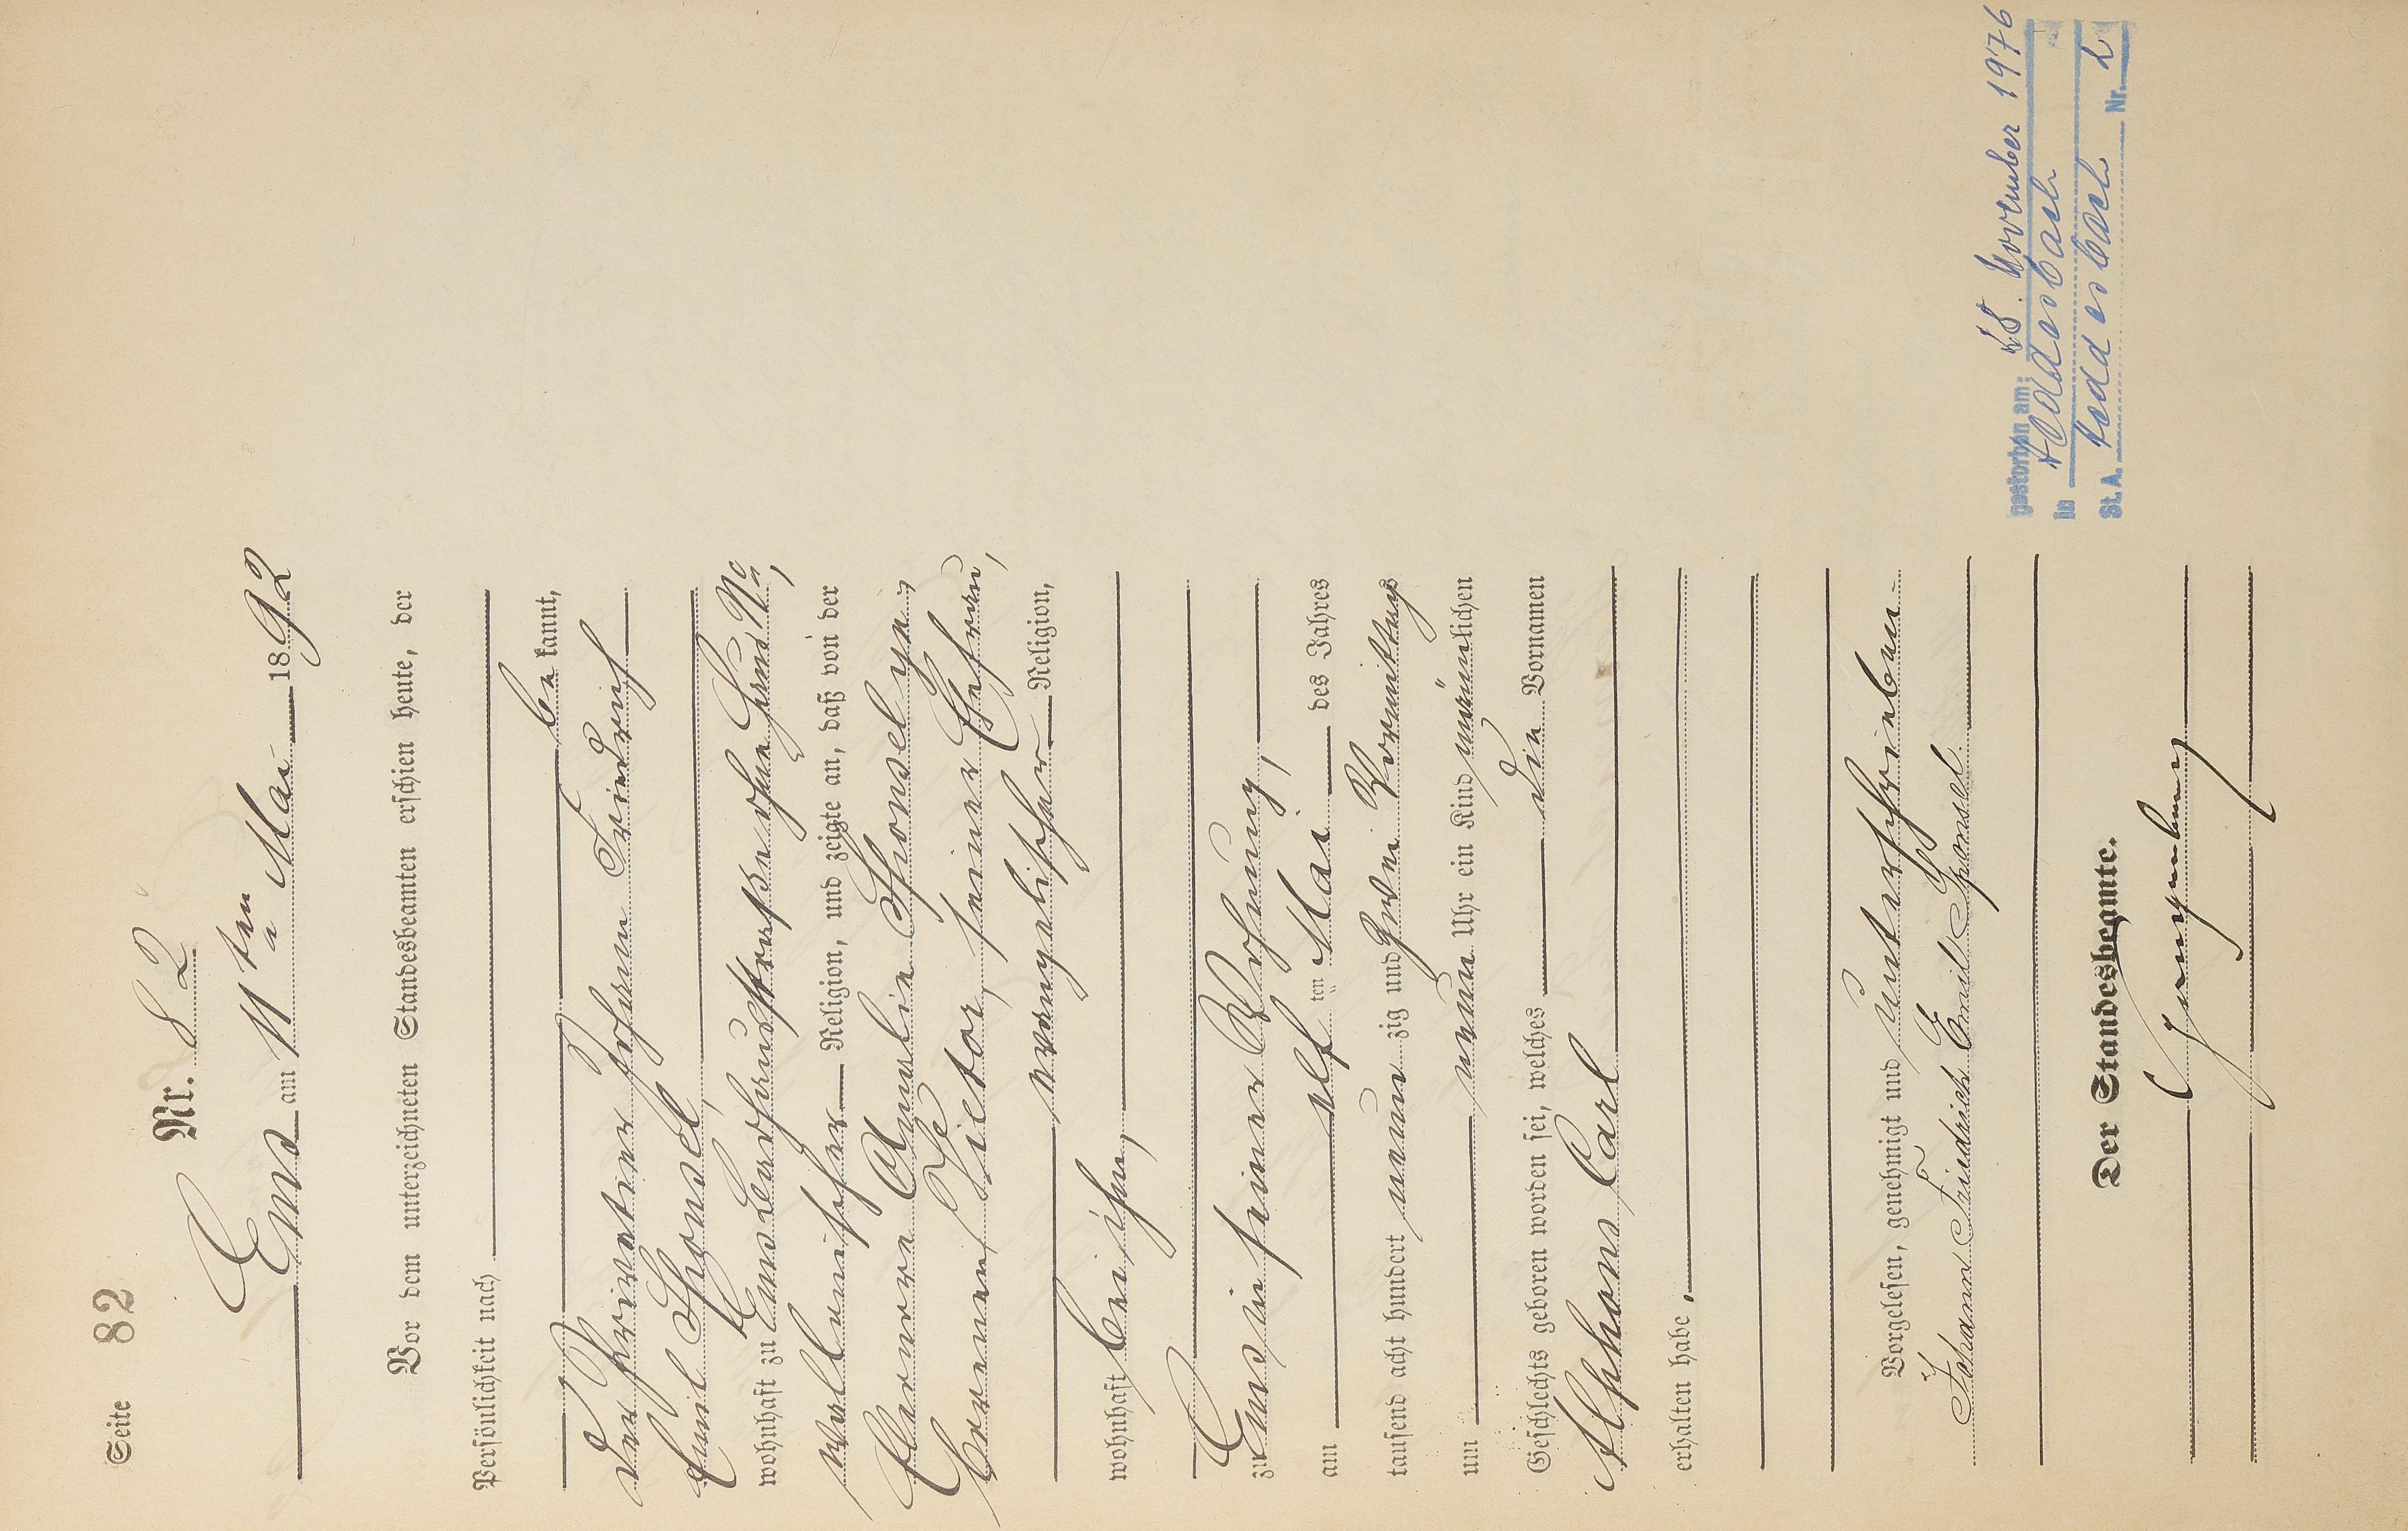 Seite 82
Nr. 82
Ems am 11ten Mai 1892
Vor dem unterzeichneten Standesbeamten erschien heute, der
Persönlichkeit nach
be kannt,
der Privatier Johann Friedrich
Emil Sponsel,
wohnhaft zu Ems
Religion, und zeigte an, daß von der
Amalie Sponsel
geborenen seiner Ehefrau,
evangelischer Religion,
wohnhaft bei ihm,
zu Ems in seiner Wohnung,
am elf ten Mai des Jahres
tausend acht hundert neun zig und zwei Vormittags
um neun Uhr ein Kind männlichen
Geschlechts geboren worden sei, welches die Vornamen
Alphons Carl
erhalten habe.
Vorgelesen, genehmigt und unterschrieben.
Johann Friedrich Emil Sponsel.
Der Standesbeamte.
gestorben am: November 1976
in
St. A. Nr. 2